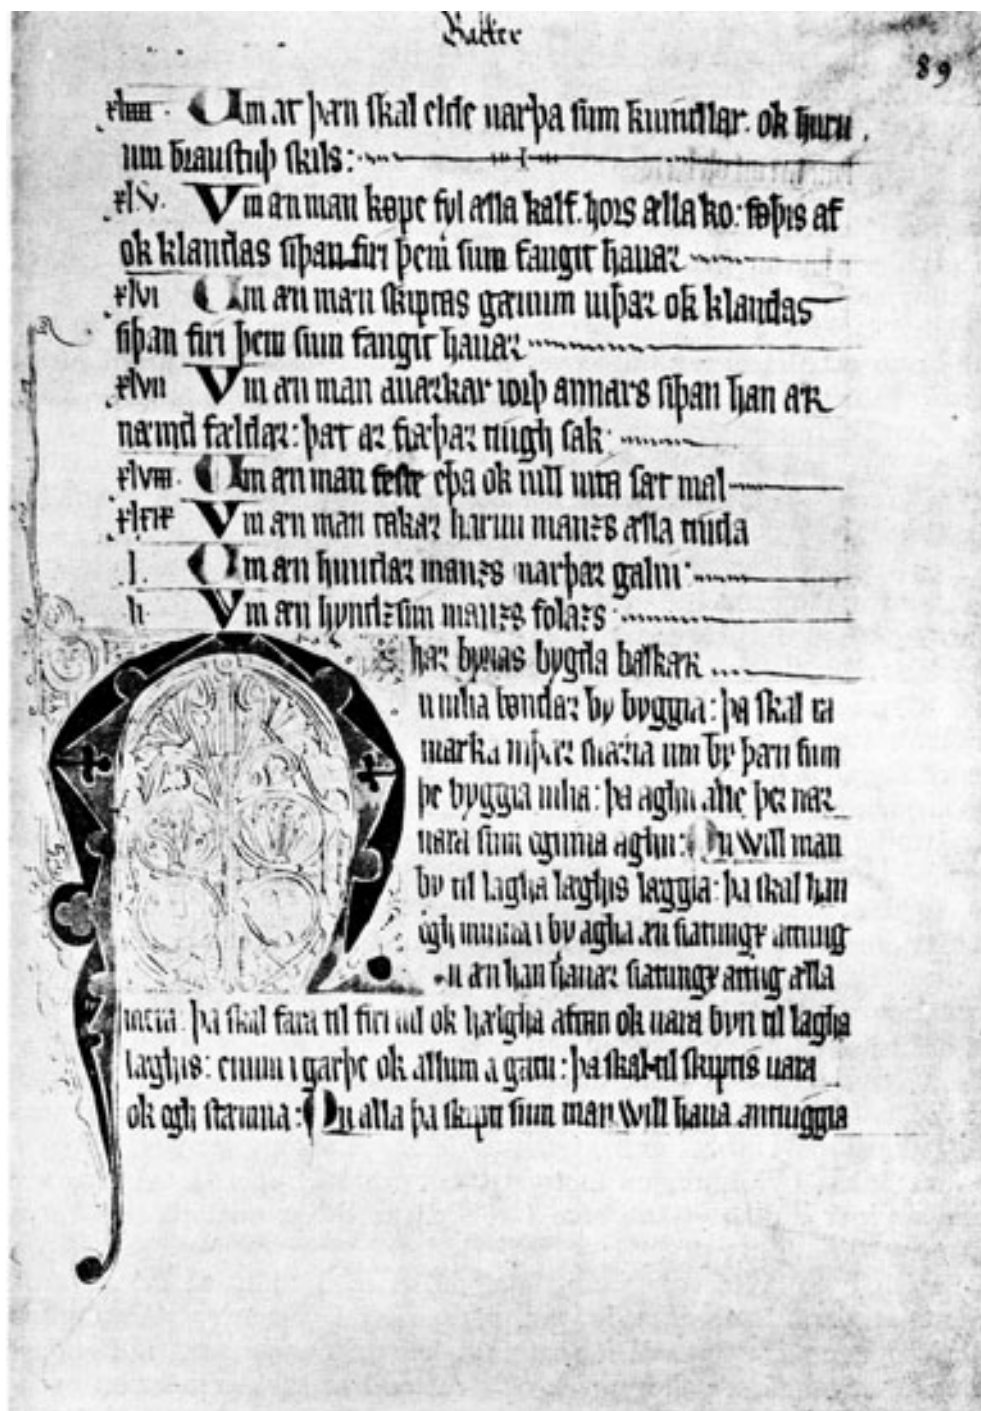 Balker
89
xliiii. Um at þæn skal elde uarþa sum kumbllar. ok huru
um braustuþ skils:
xlv. Vm æn man køpe fyl ælla kalf. hors ælla ko: føþis af
ok klandas siþan firi þem sum fangit hauar
xlvi Um æn man skiptas gænum uiþar ok klandas
siþan firi þem sum fangit hauar
xlvii Vm æn man auærkar wiþ annars siþan han ær
næmd fældar: þæt ær fiæþar tiugh sak
xlviii. Um æn man feste eþa ok uill uita sæt mal
xlix Vm æn man takar haruu manzs ælla
l. Um æn hundar manzs uarþar galin
li Vm æn hyndzsim manzs folazs
hær byrias bygda balkær
u uilia bøndær by byggia: þa skal ra
marka um by þæn sum
þe byggia uilia: þa aghu alle þer nær
uara sum eghnina aghu: Nu will man
by til lagha læghis læggia: þa skal han
egh minna i by agha æn siatungx attung
u æn han hauar siatungx attug ælla
minna. þa skal fara til firi uil ok hælgha aftan ok uara byn til lagha
læghis: enum i garþe ok allum a gatu: þa skal til skiptis uara
ok egh stæmna: Nu alla þa skipti sum man will haua